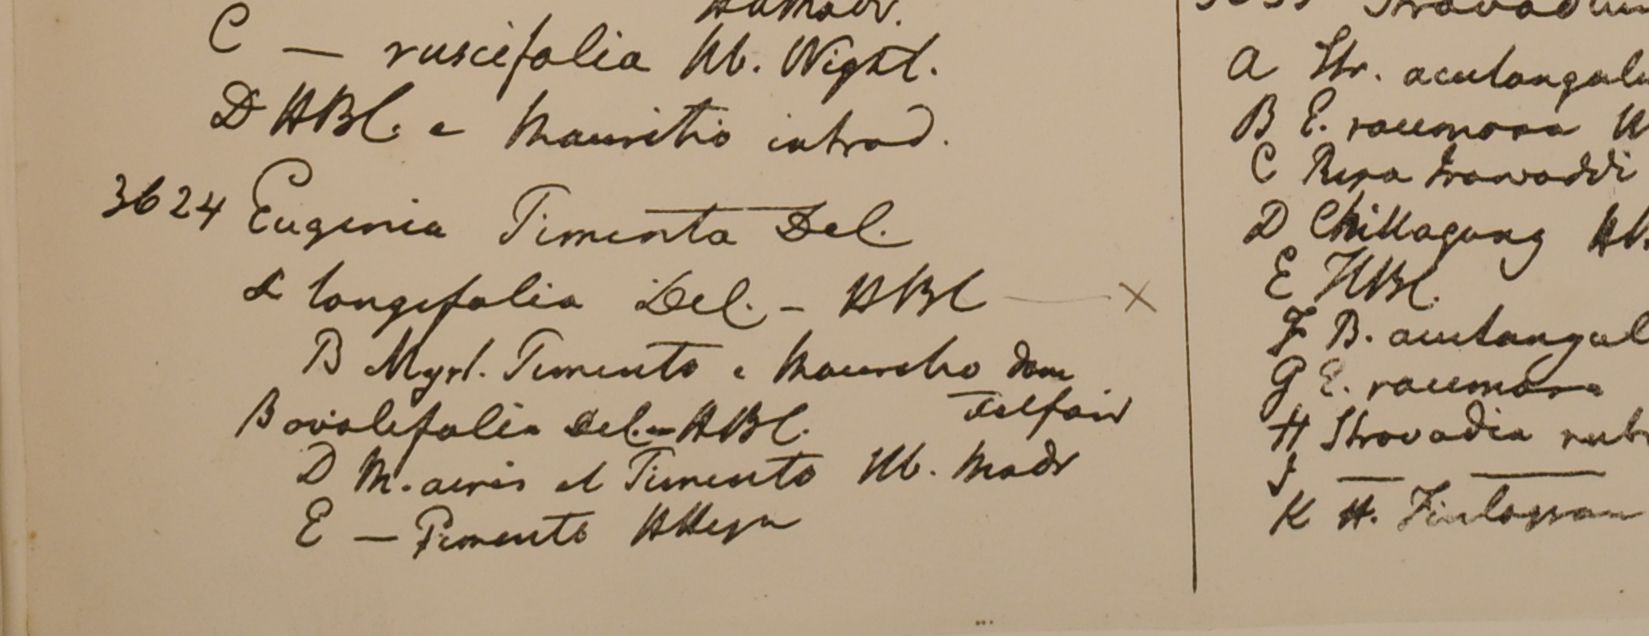 C — ruscifolia Hb. Wight.
D HBC. e Mauritio introd.
3624 Eugenia Pimenta Del.
α longifolia Del. – HBC ×
B Myrt. Pimento e Mauritio dom
Telfair
β ovalifolia Del. – HBC.
D M. acris et Pimento Hb. Madr
E — Pimento HHeyn
A Str. acutangul
B E. racemosa H
C Ripa Irawaddi
D Chittagong
E HBC.
F B. acutangul
G E. racemosa
H Stravadia rub
J — —
K H. Finlayson